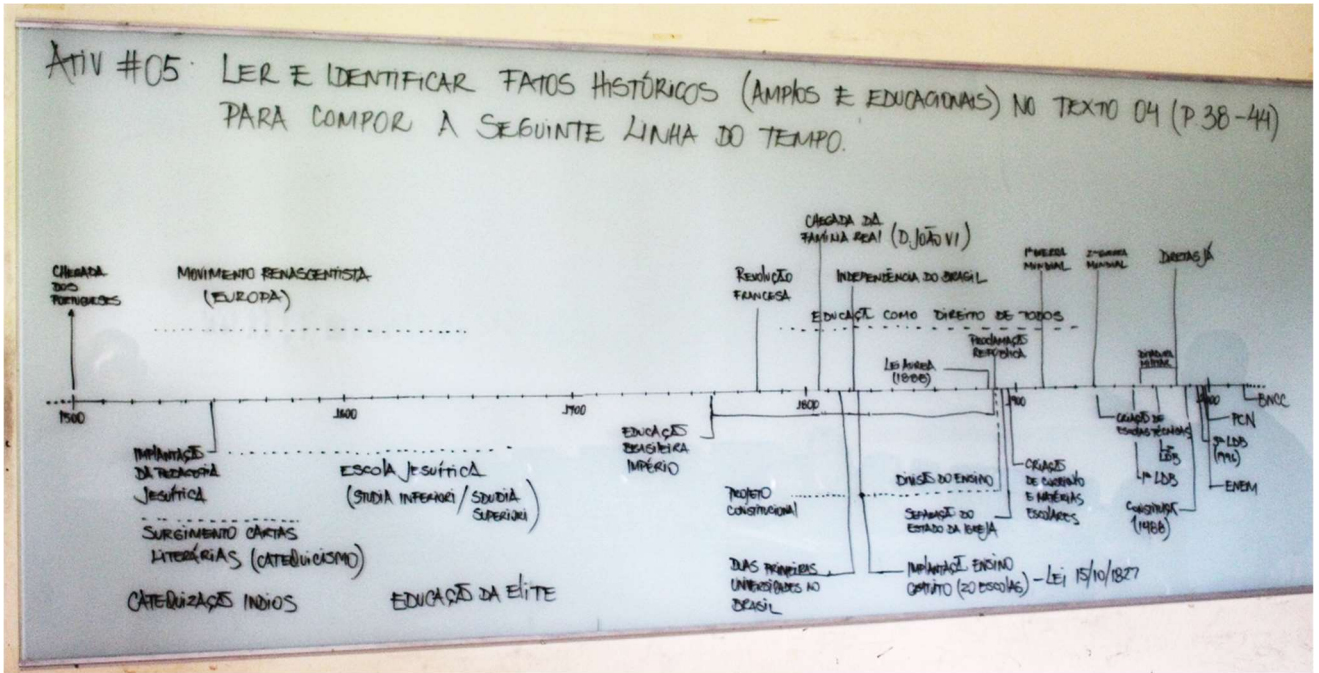 ATIV #05. LER E IDENTIFICAR FATOS HISTÓRICOS (AMPLOS E EDUCACIONAIS) NO TEXTO 04 (P. 38-44)
PARA COMPOR A SEGUINTE LINHA DO TEMPO.
CHEGADA
DOS
PORTUGUESES
MOVIMENTO RENASCENTISTA
(EUROPA)
REVOLUÇÃO
FRANCESA
CHEGADA DA
FAMÍLIA REAL (D. JOÃO VI)
INDEPENDÊNCIA DO BRASIL
EDUCAÇÃO COMO DIREITO DE TODOS
LEI ÁUREA
(1888)
PROCLAMAÇÃO
REPÚBLICA
1ª GUERRA
MUNDIAL
2ª GUERRA
MUNDIAL
DIRETAS JÁ
DITADURA
MILITAR
1500
1600
1700
1800
1900
2000
IMPLANTAÇÃO
DA PEDAGOGIA
JESUÍTICA
ESCOLA JESUÍTICA
(STUDIA INFERIORI / SDUDIA
SUPERIORI)
SURGIMENTO CARTAS
LITERÁRIAS (CATEQUICISMO)
CATEQUIZAÇÃO INDIOS
EDUCAÇÃO DA ELITE
EDUCAÇÃO
BRASILEIRA
IMPÉRIO
PROJETO
CONSTITUCIONAL
DUAS PRIMEIRAS
UNIVERSIDADES NO
BRASIL
DIVISÃO DO ENSINO
SEPARAÇÃO DO
ESTADO DA IGREJA
IMPLANTAÇÃO ENSINO
GRATUITO (20 ESCOLAS) - LEI 15/10/1827
CRIAÇÃO
DE CURRÍNHO
E MATÉRIAS
ESCOLARES
CRIAÇÃO DE
ESCOLAS TÉCNICAS
1ª LDB
LDB
CONSTITUIÇÃO
(1988)
LDB
(1996)
ENEM
PCN
BNCC